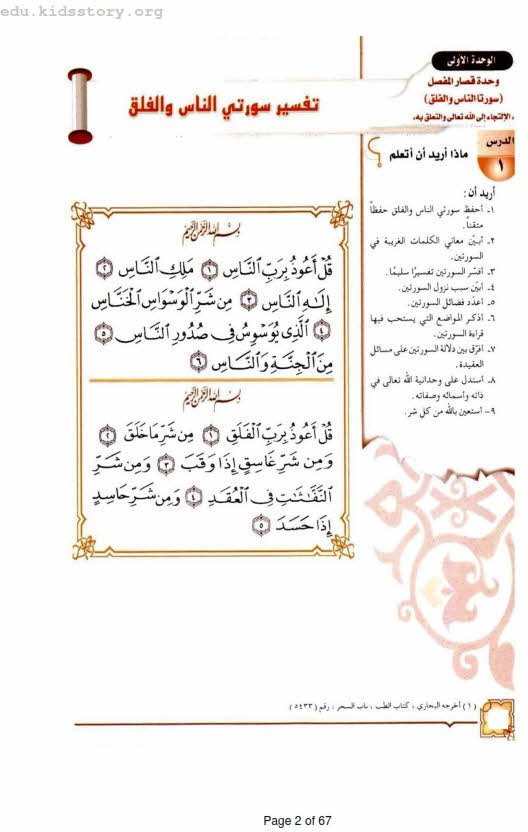 edu.kidsstory.org
الوحدة الأولى
وحدة قصار المفصل
(سورتا الناس والفلق)
الإلتجاء إلى الله تعالى والتعلق به.
تفسير سورتي الناس والفلق
الدرس
١
ماذا أريد أن أتعلم
أريد أن:
١ـ أحفظ سورتي الناس والفلق حفظاً
متقناً.
٢ـ أبيّن معاني الكلمات الغريبة في
السورتين.
٣ـ أفسّر السورتين تفسيرًا سليمًا.
٤ـ أبيّن سبب نزول السورتين.
٥ـ أعدّد فضائل السورتين.
٦ـ أذكر المواضع التي يستحب فيها
قراءة السورتين.
٧ـ أفرّق بين دلالة السورتين على مسائل
العقيدة.
٨ـ أستدل على وحدانية الله تعالى في
ذاته وأسمائه وصفاته.
٩ـ أستعين بالله من كل شر.
بِسْمِ اللَّهِ الرَّحْمَٰنِ الرَّحِيمِ
قُلْ أَعُوذُ بِرَبِّ النَّاسِ ١ مَلِكِ النَّاسِ ٢
إِلَٰهِ النَّاسِ ٣ مِن شَرِّ الْوَسْوَاسِ الْخَنَّاسِ
٤ الَّذِي يُوَسْوِسُ فِي صُدُورِ النَّاسِ ٥
مِنَ الْجِنَّةِ وَالنَّاسِ ٦
بِسْمِ اللَّهِ الرَّحْمَٰنِ الرَّحِيمِ
قُلْ أَعُوذُ بِرَبِّ الْفَلَقِ ١ مِن شَرِّ مَا خَلَقَ ٢
وَمِن شَرِّ غَاسِقٍ إِذَا وَقَبَ ٣ وَمِن شَرِّ
النَّفَّٰثَٰتِ فِي الْعُقَدِ ٤ وَمِن شَرِّ حَاسِدٍ
إِذَا حَسَدَ ٥
(١) أخرجه البخاري ، كتاب الطب ، باب السحر ، رقم (٥٤٣٣)
Page 2 of 67